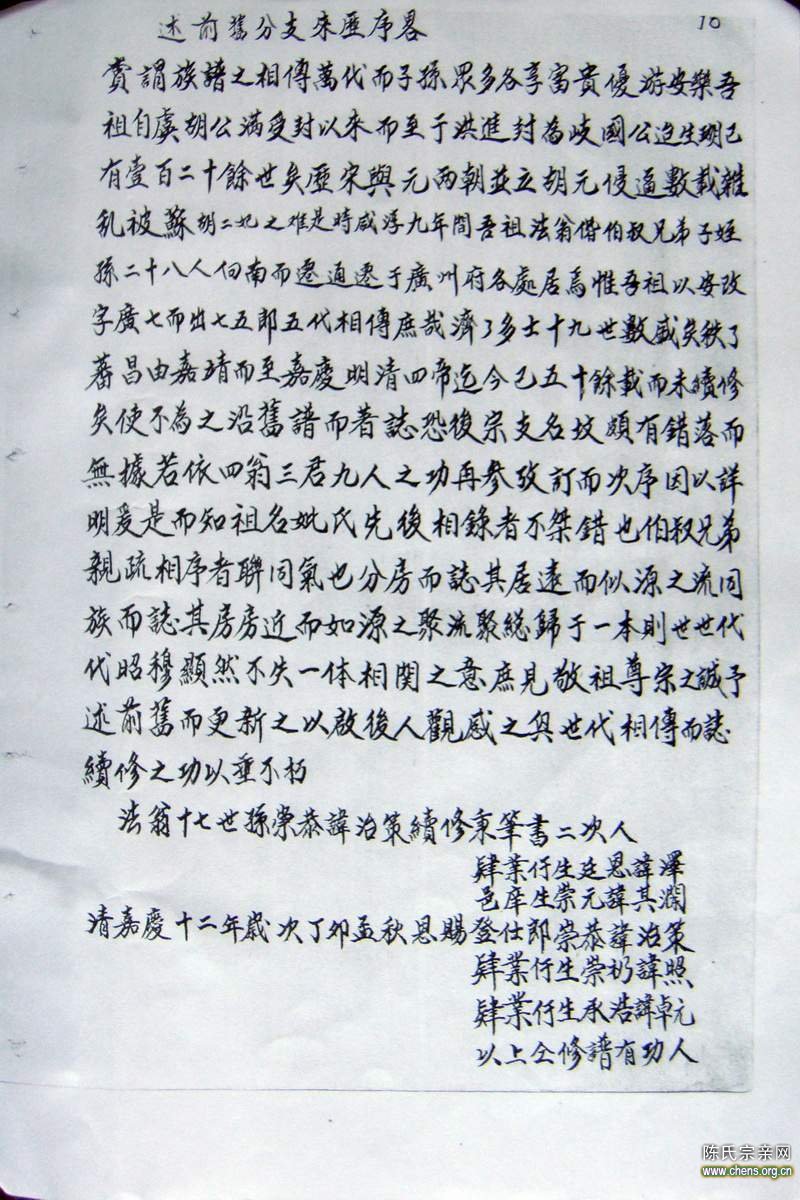 述前舊分支來歷序畧
10
嘗謂族譜之相傳萬代而子孫眾多各享富貴優游安樂吾
祖自虞胡公滿受封以來而至于洪進封為岐國公迨生珝已
有壹百二十餘世矣歷宋與元両朝並立胡元侵逼數載雜
乱被蘇胡二妃之难是時咸淳九年間吾祖法翁偕伯叔兄弟子姪
孫二十八人向南而遷通遷于廣州府各處居焉惟吾祖以安改
字廣七而出七五郎五代相傳庶哉濟了多士十九世數盛矣秩了
蕃昌由嘉靖而至嘉慶明清四帝迄今已五十餘載而未續修
矣使不為之沿舊譜而著誌恐後宗支名坟頗有錯落而
無據若依四翁三君九人之功再參攷訂而次序因以詳
明爰是而知祖名妣氏先後相錄者不桀錯也伯叔兄弟
親疏相序者聯同氣也分房而誌其居遠而似源之流同
族而誌其房房近而如源之聚流聚総歸于一本則世世代
代昭穆顯然不失一体相関之意庶見敬祖尊宗之誠予
述前舊而更新之以啟後人觀感之與世代相傳而誌
續修之功以垂不朽
法翁十七世孫崇恭諱治策續修秉筆書二次人
肄業行生廷恩諱澤
邑庠生崇元諱其瀾
清嘉慶十二年歲次丁卯孟秋恩賜登仕郎崇恭諱治策
肄業行生崇礽諱照
肄業行生承浩諱卓元
以上仝修譜有功人
陈氏宗亲网
www.chens.org.cn